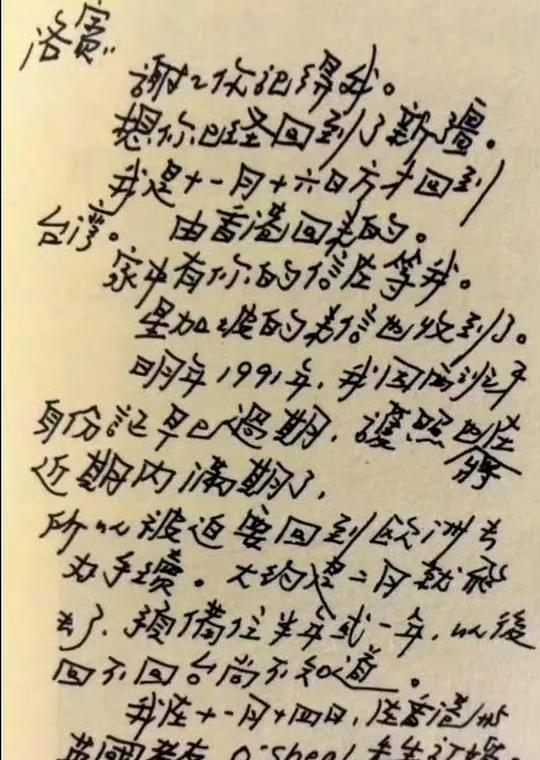 洛賓：
謝々你記得我。
想你已經回到了新疆。
我是十一月十六日方才回到
台灣。由香港回來的。
家中有你的信在等我。
星加坡的來信也收到了。
明年1991年，我因西班牙
身份証早已過期，護照也在
將
近期内滿期了，
所以被迫要回到歐洲去
办手續。大約是二月就飛
去了，預備住半年或一年，以後
回不回台尚不知道。
我在十一月十四日，在香港與
英國 O'Shea 先生訂婚。